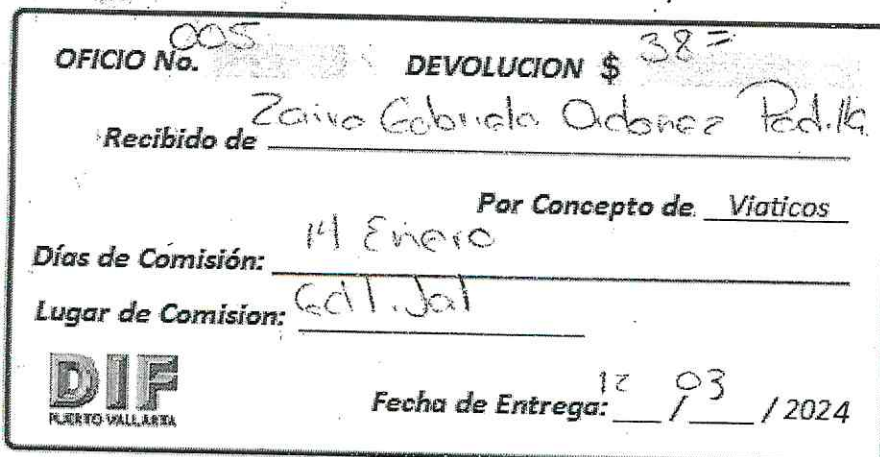 OFICIO No. 005 DEVOLUCION $ 38=
Recibido de Zaira Gabriela Ordonez Padilla
Por Concepto de Viaticos
Días de Comisión: 14 Enero
Lugar de Comision: Gdl. Jal
DIF
PUERTO VALLARTA
Fecha de Entrega: 12 / 03 / 2024